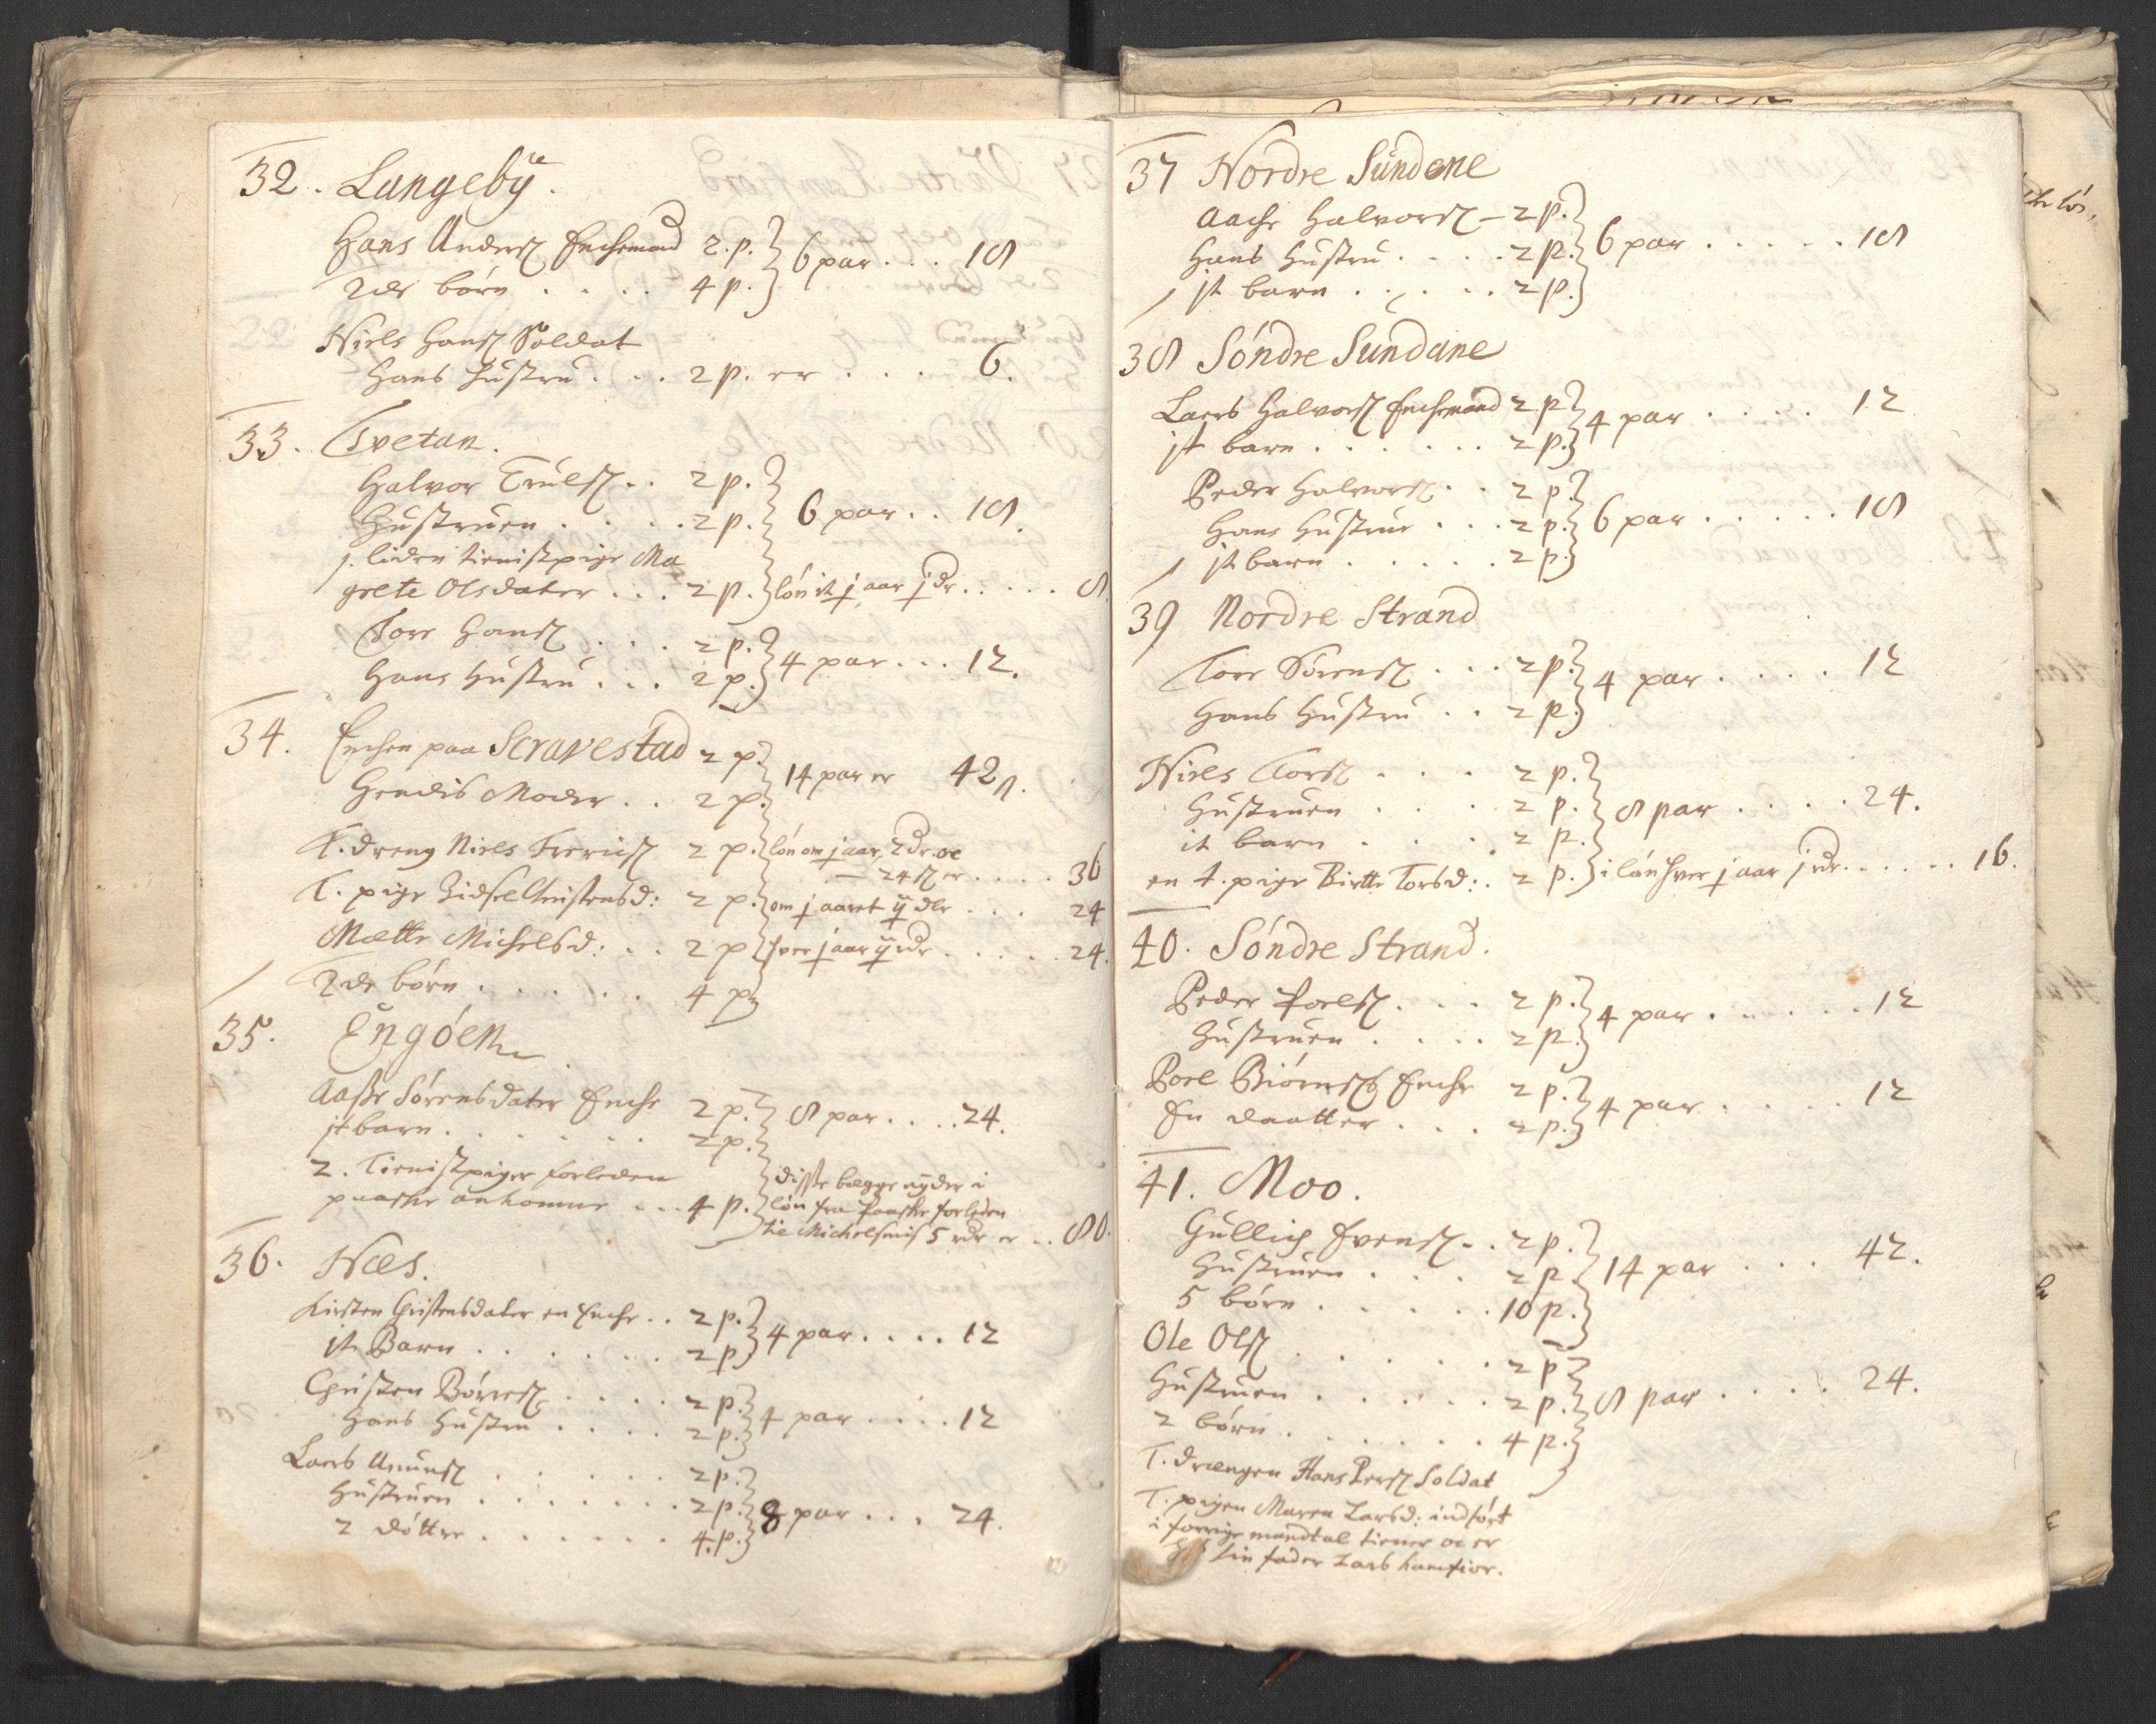 32. Langebÿe.
Hans Anders: Enchemand 2. p. } 6 par . . . 18
2de børn . . . . 4 p. }
Niels Hans: Soldat
Hans Hustru . . . 2 p. er . . . . 6.
33. Tvetan.
Halvor Truls: . . 2 p.
Hustruen . . . . 2 p. } 6 par . . 18.
j. liden tienistpige Ma
grete Olsdater . . . 2 p. } løn it j aar j dr . . . . . 8.
Tore Hans: . . . 2 p. } 4 par . . . 12.
Hans Hustru . . . 2 p. }
34. Enchen paa Scravestad 2 p. } 14 par er 42 s.
Hendis Moder . . 2 p.
T. dreng Niels Frerics: 2 p. } løn om j aar 2 dr. oc
— 24 s: er . . . . 36
T. pige Zidsel Christensd: 2 p. } om j aaret ij dlr . . . 24
Mette Michelsd: . . 2 p } hver j aar ij rdr . . . . . 24.
2de børn . . . . . . 4 p }
35. Engöen
Aasse Sørensdater Enche 2 p. } 8 par . . . . 24.
it barn . . . . . . . 2 p.
2. Tienistpiger forleden
paaske ankomne . . . 4 p. } disse begge nyder i
løn fra Paaske forleden
til Michelsmis 5 rdr er . . 80.
36. Næs.
Kirsten Christensdater en Enche . . 2 p. } 4 par . . . . 12
it Barn . . . . . . . 2 p }
Christen Børres: . . . . 2 p. } 4 par . . . . 12
Hans Hustru . . . . 2 p. }
Laers Amuns: . . . . . . 2 p. }
Hustruen . . . . . . . 2 p. } 8 par . . . 24.
2 døttre . . . . . . . 4. p. }
37 Nordre Sundene
Aache Halvors: — 2 p. }
Hans Hustru . . . . 2 p. } 6 par . . . . . 18
it barn . . . . . 2 p. }
38 Söndre Sundane
Laers Halvors: Enchemand 2 p } 4 par . . . . 12
it barn . . . . . . 2 p. }
Peder Halvors: . . 2 p. }
Hans Hustrue . . . 2 p. } 6 par . . . . . 18
it barn . . . . . 2 p. }
39 Nordre Strand
Tore Sørens: . . . 2 p. } 4 par . . . . 12
Hans Hustru . . 2 p. }
Niels Tors: . . . . 2 p. }
Hustruen . . . . 2 p. } 8 par . . . . 24.
it barn . . . . . 2 p. }
en t. pige Birtte Torsd: . 2 p. } i løn hver j aar j rdr . . . . . . 16.
40. Söndre Strand.
Peder Poels: . . . 2 p. } 4 par . . . . . . 12
Hustruen . . . . 2 p. }
Poel Biørns: Enche 2 p. } 4 par . . . . . 12
En daatter . . . 2 p. }
41. Moo.
Gullich Evens: . . 2 p. }
Hustruen . . . . 2 p. } 14 par . . . . 42.
5 børn . . . . . 10 p. }
Ole Ols: . . . . . . 2 p }
Hustruen . . . . . . 2 p. } 8 par . . . . 24.
2 børn . . . . . . 4 p. }
T. drængen Hans Pers: Soldat
T. pigen Maren Larsd: indført
i forrige mandtal tiener oc er
sin fader Lars kamfior.